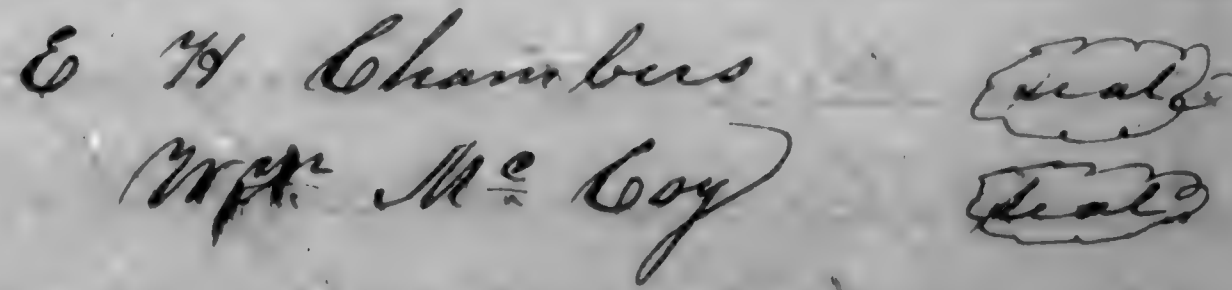 E H Chambers seal
Mc Coy seal